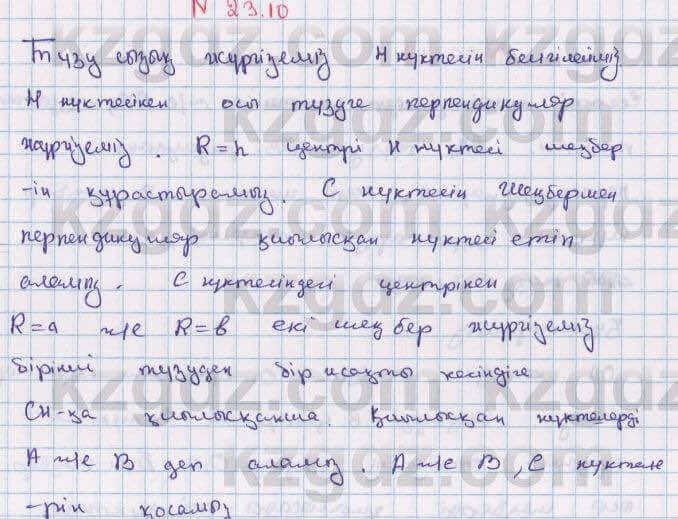 N 23.10
Түзу сызық жүргіземіз H нүктесін белгілейміз
H нүктесінен осы түзуге перпендикуляр
жүргіземіз. R=h центрі H нүктесі шеңбер
-ін құрастырамыз. C нүктесін шеңбермен
перпендикуляр қиылысқан нүктесі етіп
аламыз. C нүктесіндегі центрінен
R=a ж/е R=b екі шеңбер жүргіземіз
бірінші түзуден бір жақты кесіндіге
CH-қа қиылысқанша. Қиылысқан нүктелерді
A ж/е B деп аламыз. A ж/е B, C нүктеле
-рін қосамыз
kzgdz.com